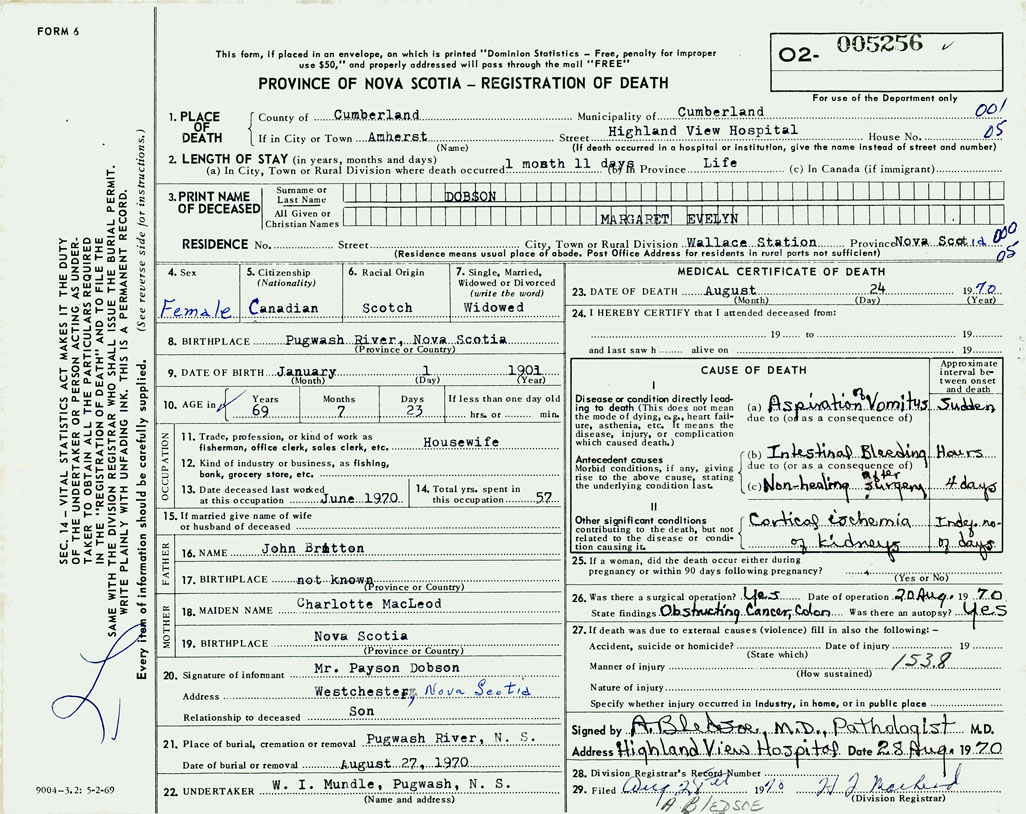 FORM 6
This form, if placed in an envelope, on which is printed "Dominion Statistics – Free, penalty for improper
use $50," and properly addressed will pass through the mail "FREE"
PROVINCE OF NOVA SCOTIA – REGISTRATION OF DEATH
02- 005256
For use of the Department only
SEC. 14 – VITAL STATISTICS ACT MAKES IT THE DUTY
OF THE UNDERTAKER OR PERSON ACTING AS UNDER-
TAKER TO OBTAIN ALL THE PARTICULARS REQUIRED
IN THE "REGISTRATION OF DEATH" AND TO FILE THE
SAME WITH THE DIVISION REGISTRAR WHO SHALL ISSUE THE BURIAL PERMIT.
WRITE PLAINLY WITH UNFADING INK. THIS IS A PERMANENT RECORD.
Every item of information should be carefully supplied. (See reverse side for instructions.)
1. PLACE OF DEATH
County of Cumberland Municipality of Cumberland 001
If in City or Town Amherst Street Highland View Hospital House No. 05
(Name) (If death occurred in a hospital or institution, give the name instead of street and number)
2. LENGTH OF STAY (in years, months and days)
(a) In City, Town or Rural Division where death occurred 1 month 11 days (b) In Province Life (c) In Canada (if immigrant)
3. PRINT NAME OF DECEASED
Surname or Last Name DOBSON
All Given or Christian Names MARGARET EVELYN
RESIDENCE No. Street City, Town or Rural Division Wallace Station Province Nova Scotia 000
(Residence means usual place of abode. Post Office Address for residents in rural parts not sufficient) 05
4. Sex
Female
5. Citizenship
(Nationality)
Canadian
6. Racial Origin
Scotch
7. Single, Married,
Widowed or Divorced
(write the word)
Widowed
8. BIRTHPLACE Pugwash River, Nova Scotia
(Province or Country)
9. DATE OF BIRTH January 1 1901
(Month) (Day) (Year)
10. AGE in
Years Months Days If less than one day old
69 7 23 hrs. or min.
OCCUPATION
11. Trade, profession, or kind of work as
fisherman, office clerk, sales clerk, etc. Housewife
12. Kind of industry or business, as fishing,
bank, grocery store, etc.
13. Date deceased last worked
at this occupation June 1970
14. Total yrs. spent in
this occupation 57
15. If married give name of wife
or husband of deceased
FATHER
16. NAME John Britton
17. BIRTHPLACE not known
(Province or Country)
MOTHER
18. MAIDEN NAME Charlotte MacLeod
19. BIRTHPLACE Nova Scotia
(Province or Country)
20. Signature of informant Mr. Payson Dobson
Address Westchester, Nova Scotia
Relationship to deceased Son
21. Place of burial, cremation or removal Pugwash River, N. S.
Date of burial or removal August 27, 1970
22. UNDERTAKER W. I. Mundle, Pugwash, N. S.
(Name and address)
9004-3.2: 5-2-69
MEDICAL CERTIFICATE OF DEATH
23. DATE OF DEATH August 24 1970
(Month) (Day) (Year)
24. I HEREBY CERTIFY that I attended deceased from:
19 to 19
and last saw h alive on 19
CAUSE OF DEATH
Approximate
interval be-
tween onset
and death
I
Disease or condition directly lead-
ing to death (This does not mean
the mode of dying, e.g., heart fail-
ure, asthenia, etc. It means the
disease, injury, or complication
which caused death.)
(a) Aspiration of Vomitus Sudden
due to (or as a consequence of)
Antecedent causes
Morbid conditions, if any, giving
rise to the above cause, stating
the underlying condition last.
(b) Intestinal Bleeding Hours
due to (or as a consequence of)
(c) Non-healing after surgery 4 days
II
Other significant conditions
contributing to the death, but not
related to the disease or condi-
tion causing it.
Cortical ischemia
of kidneys
of days
25. If a woman, did the death occur either during
pregnancy or within 90 days following pregnancy?
(Yes or No)
26. Was there a surgical operation? Yes Date of operation 20 Aug. 1970
State findings Obstructing Cancer, Colon Was there an autopsy? Yes
27. If death was due to external causes (violence) fill in also the following: –
Accident, suicide or homicide? Date of injury 19
(State which)
153.8
Manner of injury
(How sustained)
Nature of injury
Specify whether injury occurred in industry, in home, or in public place
Signed by A Bledsoe, M.D., Pathologist M.D.
Address Highland View Hospital Date 28 Aug. 1970
28. Division Registrar's Record Number
29. Filed Aug 28th 1970
(Division Registrar)
A BLEDSOE